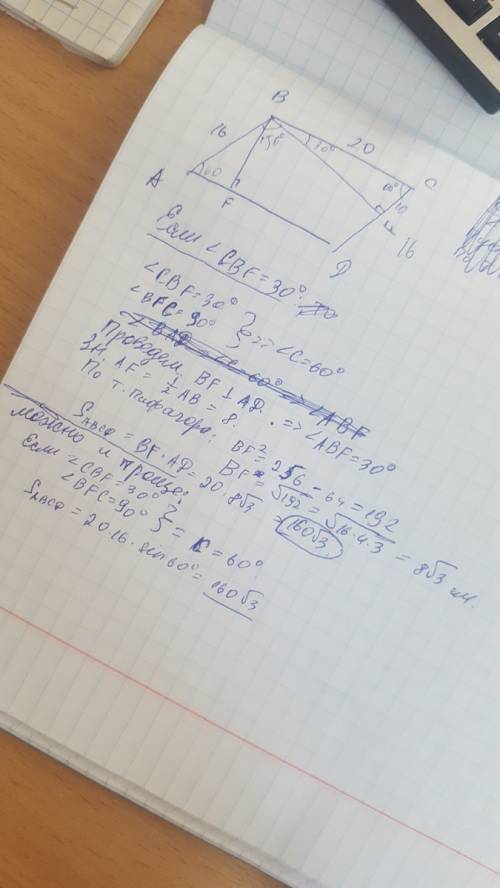 B
16
30°
30°
20
C
A
60
60°
10
F
H
16
D
Если ∠CBF = 30°.
∠CBF = 30°
∠BFC = 90° } => ∠C = 60°
Проведем BF ⊥ AD. => ∠ABF = 30°
Зн. AF = 1/2 AB = 8.
По т. Пифагора: BF² = 256 - 64 = 192
BF = √192 = √16·4·3 = 8√3 см.
S ABCD = BF · AD = 20 · 8√3 = 160√3.
Можно и проще:
Если ∠CBF = 30°
∠BFC = 90° } = C = 60°.
S ABCD = 20·16·sin60° = 160√3